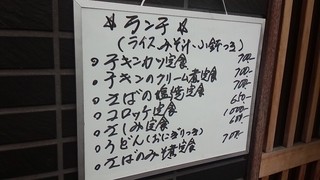 ☆ランチ☆
(ライス、みそ汁、小鉢つき)
○チキンカツ定食 700-
○チキンのクリーム煮定食 700-
○さばの塩焼定食 700-
○コロッケ定食 650-
○さしみ定食 1,000-
○うどん(おにぎりつき) 600-
○さばのみそ煮定食 700-